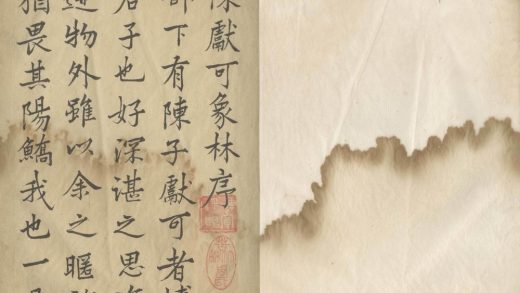 陳獻可象林序
下有陳子獻可者
君子也好深湛之思
物外雖以余之暱
猶畏其陽鱎我也一